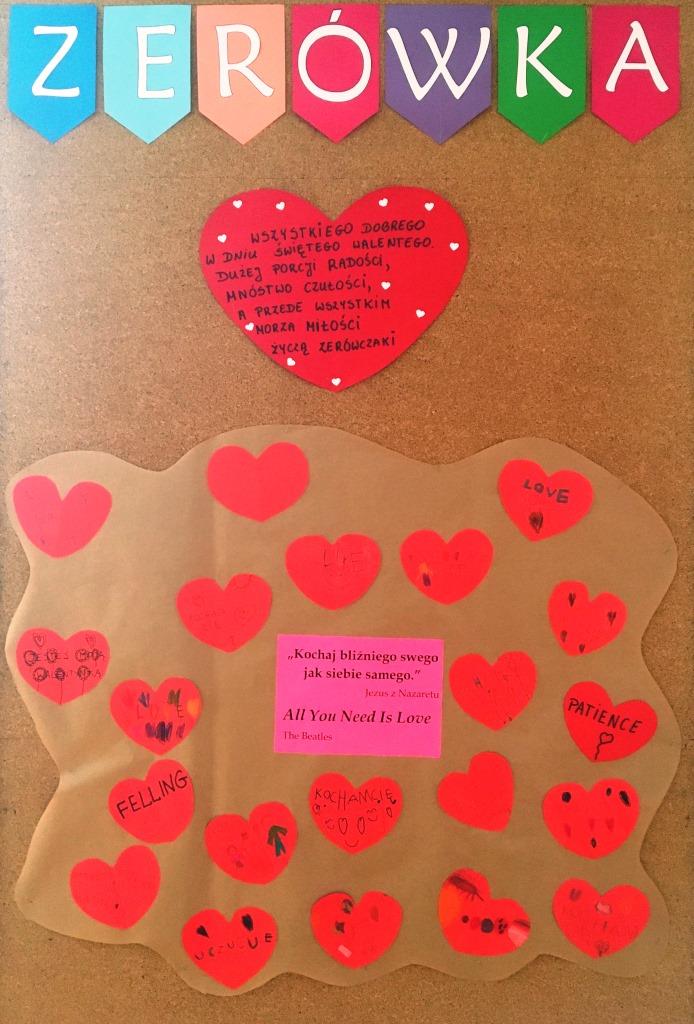 ZERÓWKA
WSZYSTKIEGO DOBREGO
W DNIU ŚWIĘTEGO WALENTEGO.
DUŻEJ PORCJI RADOŚCI,
MNÓSTWO CZUŁOŚCI,
A PRZEDE WSZYSTKIM
MORZA MIŁOŚCI
ŻYCZĄ ZERÓWCZAKI
LOVE
„Kochaj bliźniego swego
jak siebie samego.”
Jezus z Nazaretu
All You Need Is Love
The Beatles
JESTEŚ MOJĄ
WALENTYNKĄ
LOVE
PATIENCE
FELLING
KOCHAM CIĘ
UCZUCIE